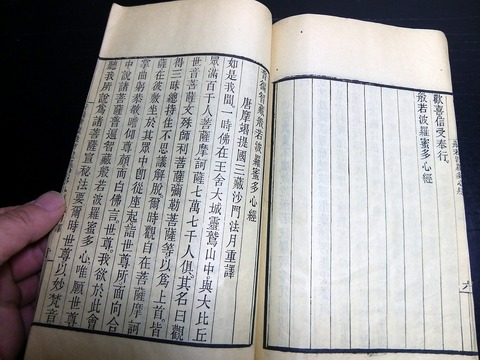 歡喜信受奉行
般若波羅蜜多心經
六
普徧智藏般若波羅蜜多心經
唐摩竭提國三藏沙門法月重譯
如是我聞一時佛在王舍大城靈鷲山中與大比丘
眾滿百千人菩薩摩訶薩七萬七千人俱其名曰觀
世音菩薩文殊師利菩薩彌勒菩薩等以為上首皆
得三昧總持住不思議解脫爾時觀自在菩薩摩訶
薩在彼敷坐於其眾中即從座起詣世尊所面向合
掌曲躬恭敬瞻仰尊顏而白佛言世尊我欲於此會
中說諸菩薩普徧智藏般若波羅蜜多心唯願世尊
聽我所說為諸菩薩宣祕法要爾時世尊以妙梵音